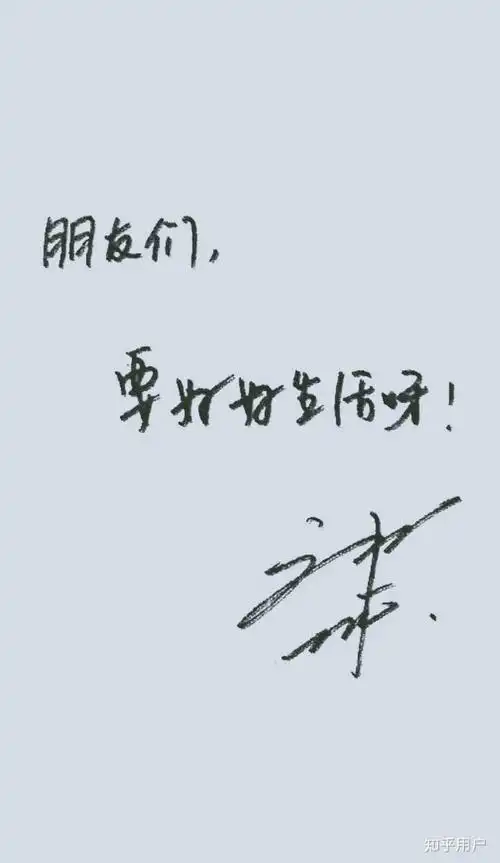 朋友们,
要好好生活呀!
知乎用户